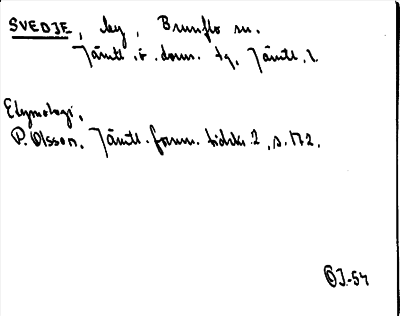 SVEDJE, by, Brunflo sn.
Jämtl. ö. doms. tg, Jämtl. l.
Etymologi,
P. Olsson, Jämtl. fornm. tidskr. 2, s. 172.
OJ-54